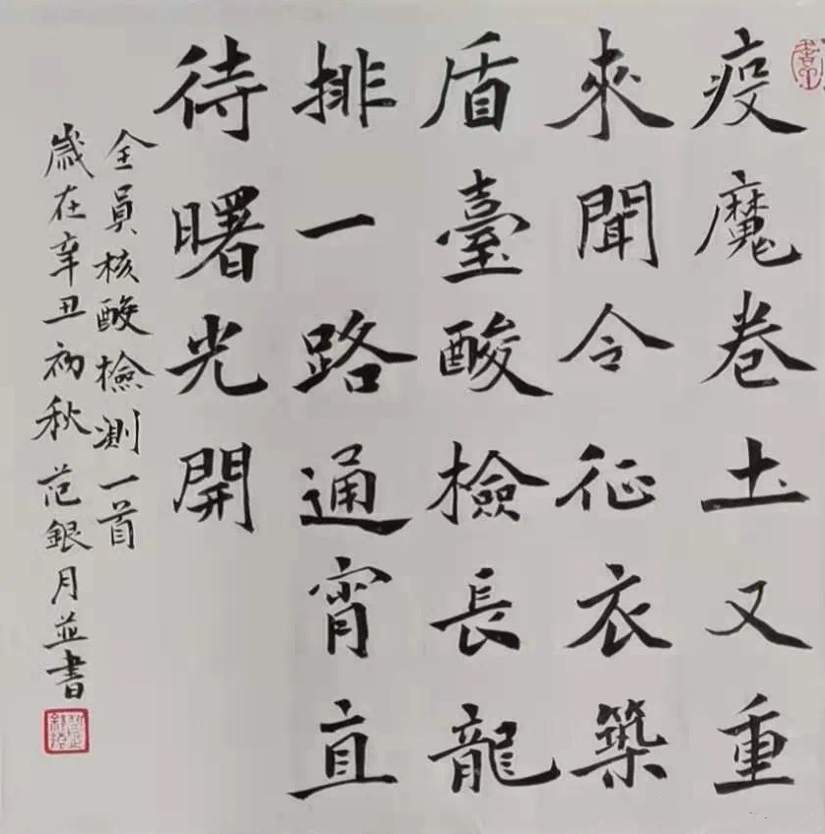 疫魔卷土又重
來聞令征衣築
盾臺酸檢長龍
排一路通宵直
待曙光開
全員核酸檢測一首
歲在辛丑初秋范銀月並書